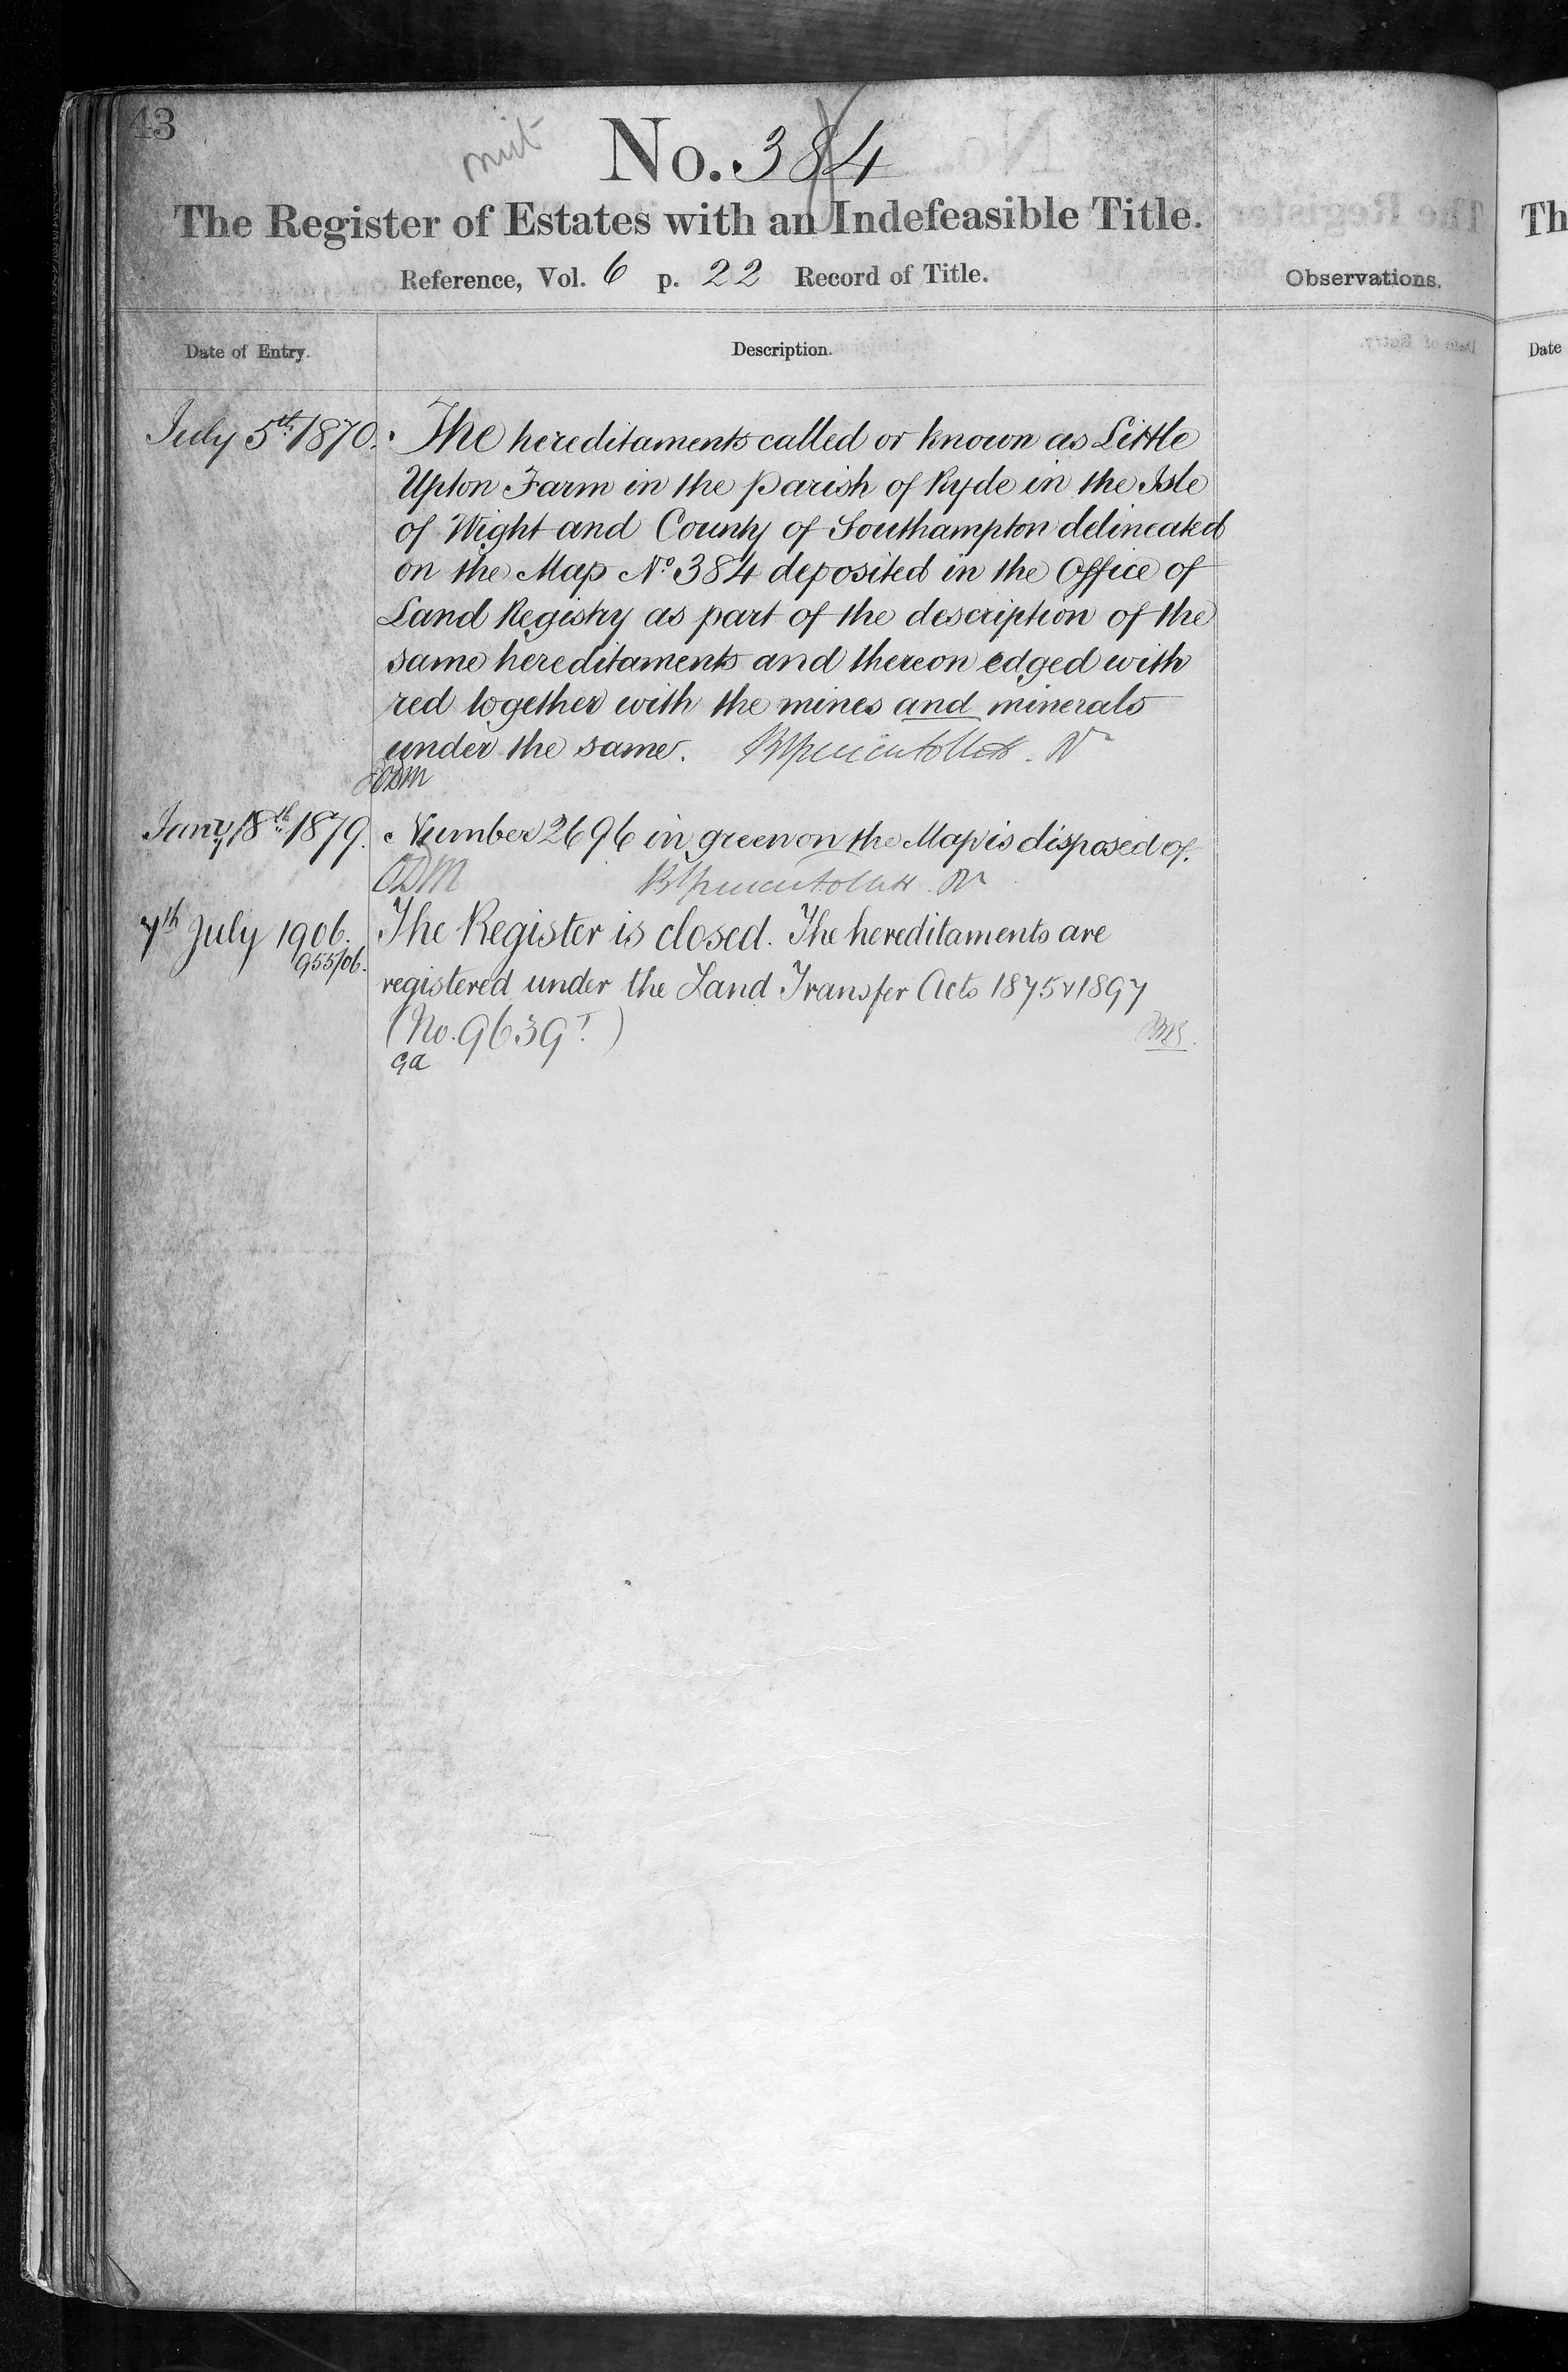 43
No. 384
The Register of Estates with an Indefeasible Title.
Reference, Vol. 6 p. 22 Record of Title.
Observations.
Date of Entry.
Description.
July 5th 1870. The hereditaments called or known as Little
Upton Farm in the parish of Ryde in the Isle
of Wight and County of Southampton delineated
on the Map No 384 deposited in the Office of
Land Registry as part of the description of the
same hereditaments and thereon edged with
red together with the mines and minerals
under the same.
ODM
Jany 18th 1879. Number 2696 in green on the Map is disposed of.
ODM
7th July 1906. The Register is closed. The hereditaments are
955/06.
registered under the Land Transfer Acts 1875 & 1897
(No. 9639 I.)
ga
Th
Date